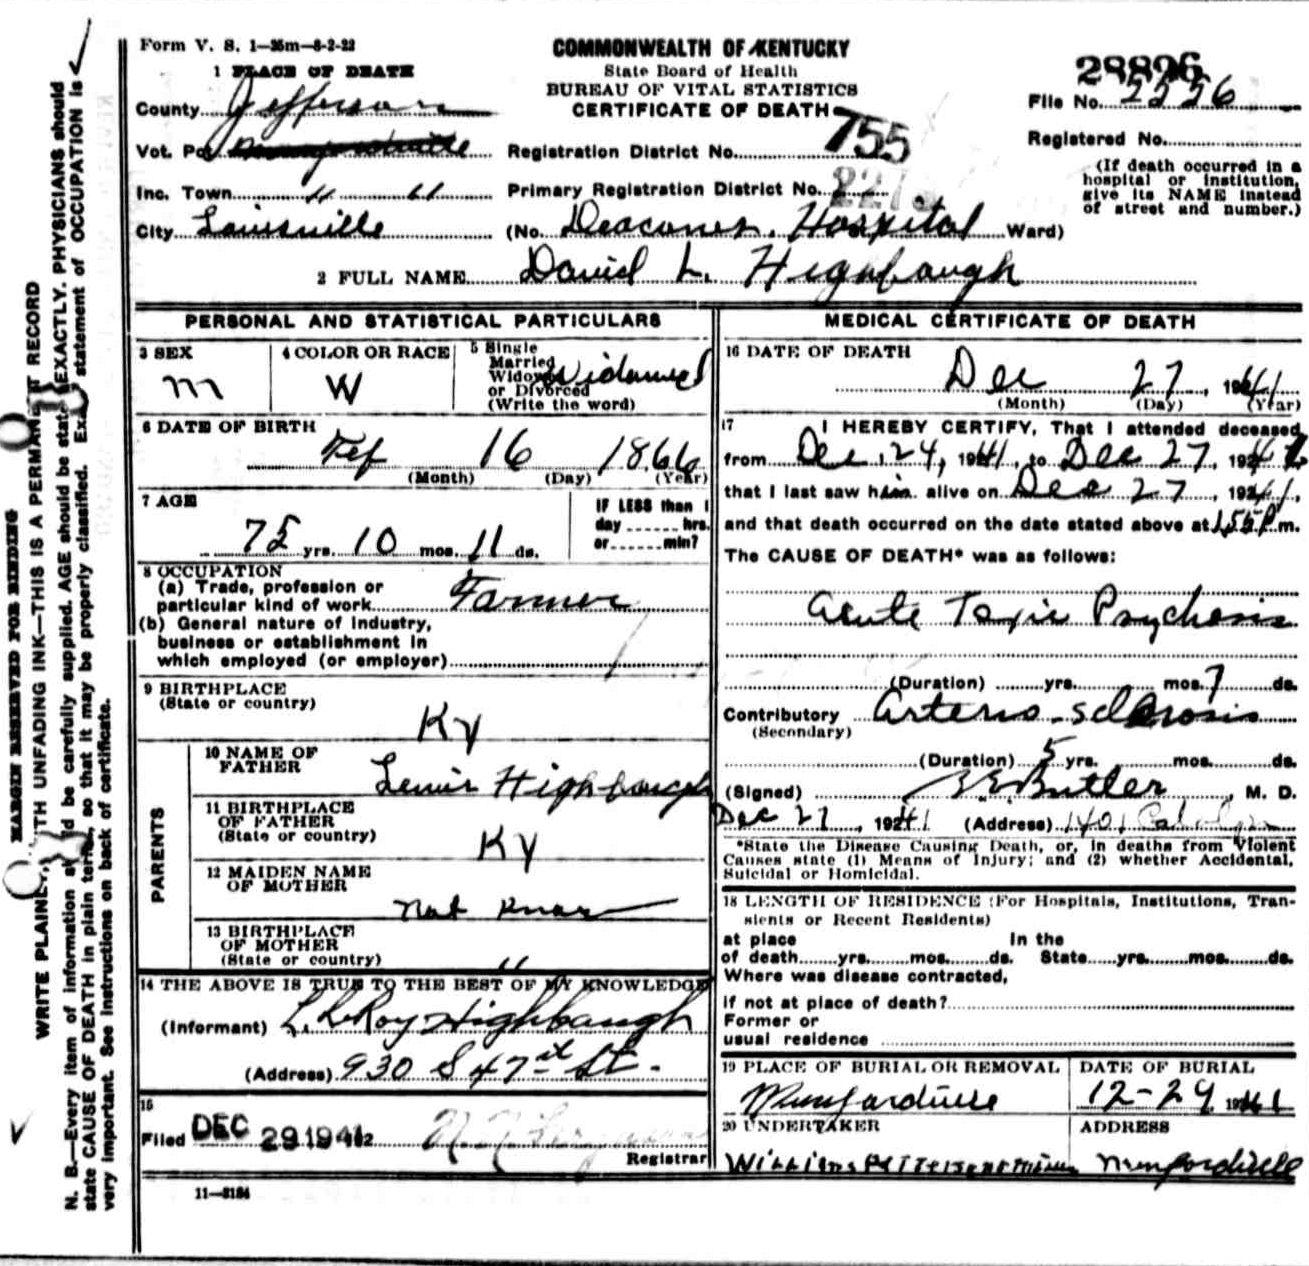 Form V. S. 1—35m—8-2-22
COMMONWEALTH OF KENTUCKY
State Board of Health
BUREAU OF VITAL STATISTICS
CERTIFICATE OF DEATH
28896
File No. 5556
Registered No.
(If death occurred in a hospital or institution, give its NAME instead of street and number.)
1 PLACE OF DEATH
County Jefferson
Vot. Pct. Munfordville
Registration District No. 755
Inc. Town " "
Primary Registration District No.
City Louisville
(No. Deaconess Hospital Ward)
2 FULL NAME David L. Highbaugh
PERSONAL AND STATISTICAL PARTICULARS
3 SEX
m
4 COLOR OR RACE
W
5 Single
Married
Widowed
or Divorced
(Write the word)
Widowed
6 DATE OF BIRTH
Feb 16 1866
(Month) (Day) (Year)
7 AGE
75 yrs. 10 mos. 11 ds.
IF LESS than 1
day ...... hrs.
or ...... min?
8 OCCUPATION
(a) Trade, profession or
particular kind of work Farmer
(b) General nature of Industry,
business or establishment in
which employed (or employer)
9 BIRTHPLACE
(State or country)
Ky
PARENTS
10 NAME OF
FATHER
Lewis Highbaugh
11 BIRTHPLACE
OF FATHER
(State or country)
Ky
12 MAIDEN NAME
OF MOTHER
Not Know
13 BIRTHPLACE
OF MOTHER
(State or country)
"
14 THE ABOVE IS TRUE TO THE BEST OF MY KNOWLEDGE
(Informant) L. LeRoy Highbaugh
(Address) 930 S 47th St.
15
Filed DEC 29 1941
Registrar
11—3184
MEDICAL CERTIFICATE OF DEATH
16 DATE OF DEATH
Dec 27, 1941
(Month) (Day) (Year)
17 I HEREBY CERTIFY, That I attended deceased
from Dec. 24, 1941, to Dec 27, 1941
that I last saw him alive on Dec 27, 1941,
and that death occurred on the date stated above at 1.55 P m.
The CAUSE OF DEATH* was as follows:
Acute Toxic Psychosis
(Duration) yrs. mos. 7 ds.
Contributory Arterio-sclerosis
(Secondary)
(Duration) 5 yrs. mos. ds.
(Signed) Butler, M. D.
Dec 27, 1941 (Address) 1401
*State the Disease Causing Death, or, in deaths from Violent
Causes state (1) Means of Injury; and (2) whether Accidental,
Suicidal or Homicidal.
18 LENGTH OF RESIDENCE (For Hospitals, Institutions, Tran-
sients or Recent Residents)
at place In the
of death yrs. mos. ds. State yrs. mos. ds.
Where was disease contracted,
if not at place of death?
Former or
usual residence
19 PLACE OF BURIAL OR REMOVAL
Munfordville
DATE OF BURIAL
12-29, 1941
20 UNDERTAKER
Williams
ADDRESS
Munfordville
MARGIN RESERVED FOR BINDING
WRITE PLAINLY, WITH UNFADING INK—THIS IS A PERMANENT RECORD
N. B.—Every item of information should be carefully supplied. AGE should be stated EXACTLY. PHYSICIANS should
state CAUSE OF DEATH in plain terms, so that it may be properly classified. Exact statement of OCCUPATION is
very important. See instructions on back of certificate.